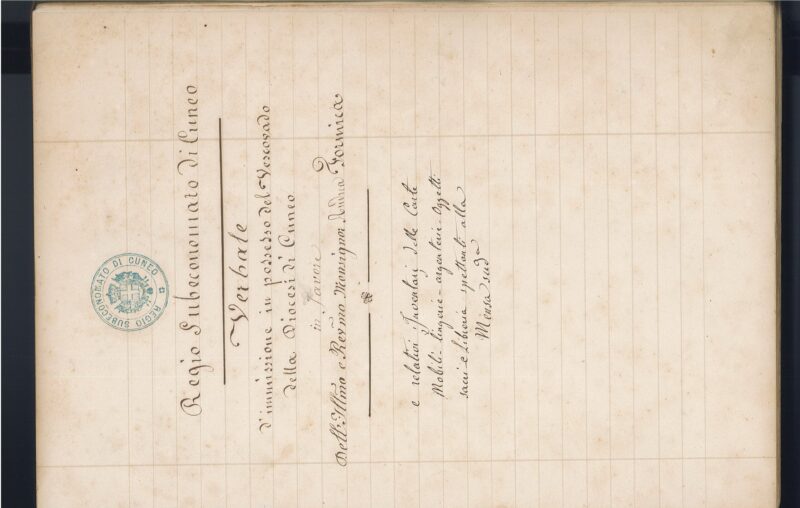 REGIO SUBECONOMATO DI CUNEO
Regio Subeconomato di Cuneo
Verbale
d'immissione in possesso del Vescovado
della Diocesi di Cuneo
in favore
Dell'Ill.mo e Rev.mo Monsignor Andrea Formica
e relativi Inventarj delle Carte
Mobili - lingerie - argenterie - oggetti
sacri e libreria spettanti alla
Mensa sud.a